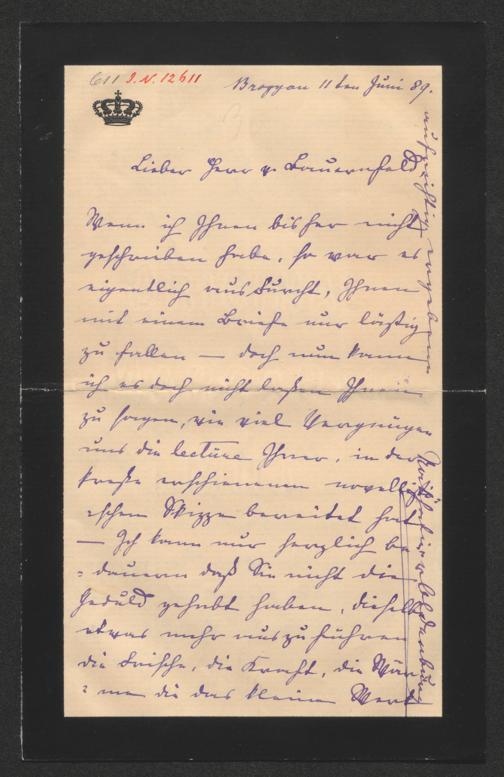 611 I.N. 12611
Brogyan 11ten Juni 89.
Lieber Herr v. Bauernfeld
Wenn ich Ihnen bisher nicht
geschrieben habe, so war es
eigentlich aus Furcht, Ihnen
mit einem Briefe nur lästig
zu fallen — doch nun kann
ich es doch nicht laßen Ihnen
zu sagen, wie viel Vergnügen
uns die lecture Ihrer, in der
Presse erschienenen novelli
=schen Skizze bereitet hat
— Ich kann nur herzlich be
=dauern daß Sie nicht die
Geduld gehabt haben, dieselbe
etwas mehr auszuführen
die Frische, die Kraft, die Wär
=me die das kleine Werk
aufrichtig ergebene
Oldenburg